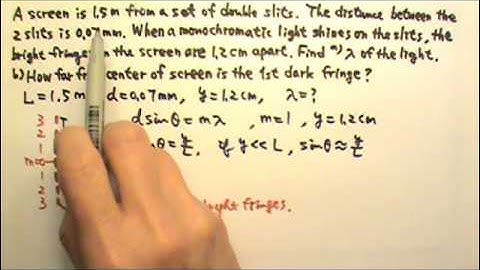 A screen is 1.5m from a set of double slits. The distance between the
2 slits is 0.07mm. When a monochromatic light shines on the slits, the
bright fringes on the screen are 1.2cm apart. Find a) λ of the light.
b) How far from center of screen is the 1st dark fringe?
L=1.5m, d=0.07mm, y=1.2cm, λ=?
3
2
1
m=0
1
2
3
d sinθ = mλ , m=1 , y=1.2cm
sinθ = y/L, if y<<L, sinθ ≈ y/L
bright fringes.